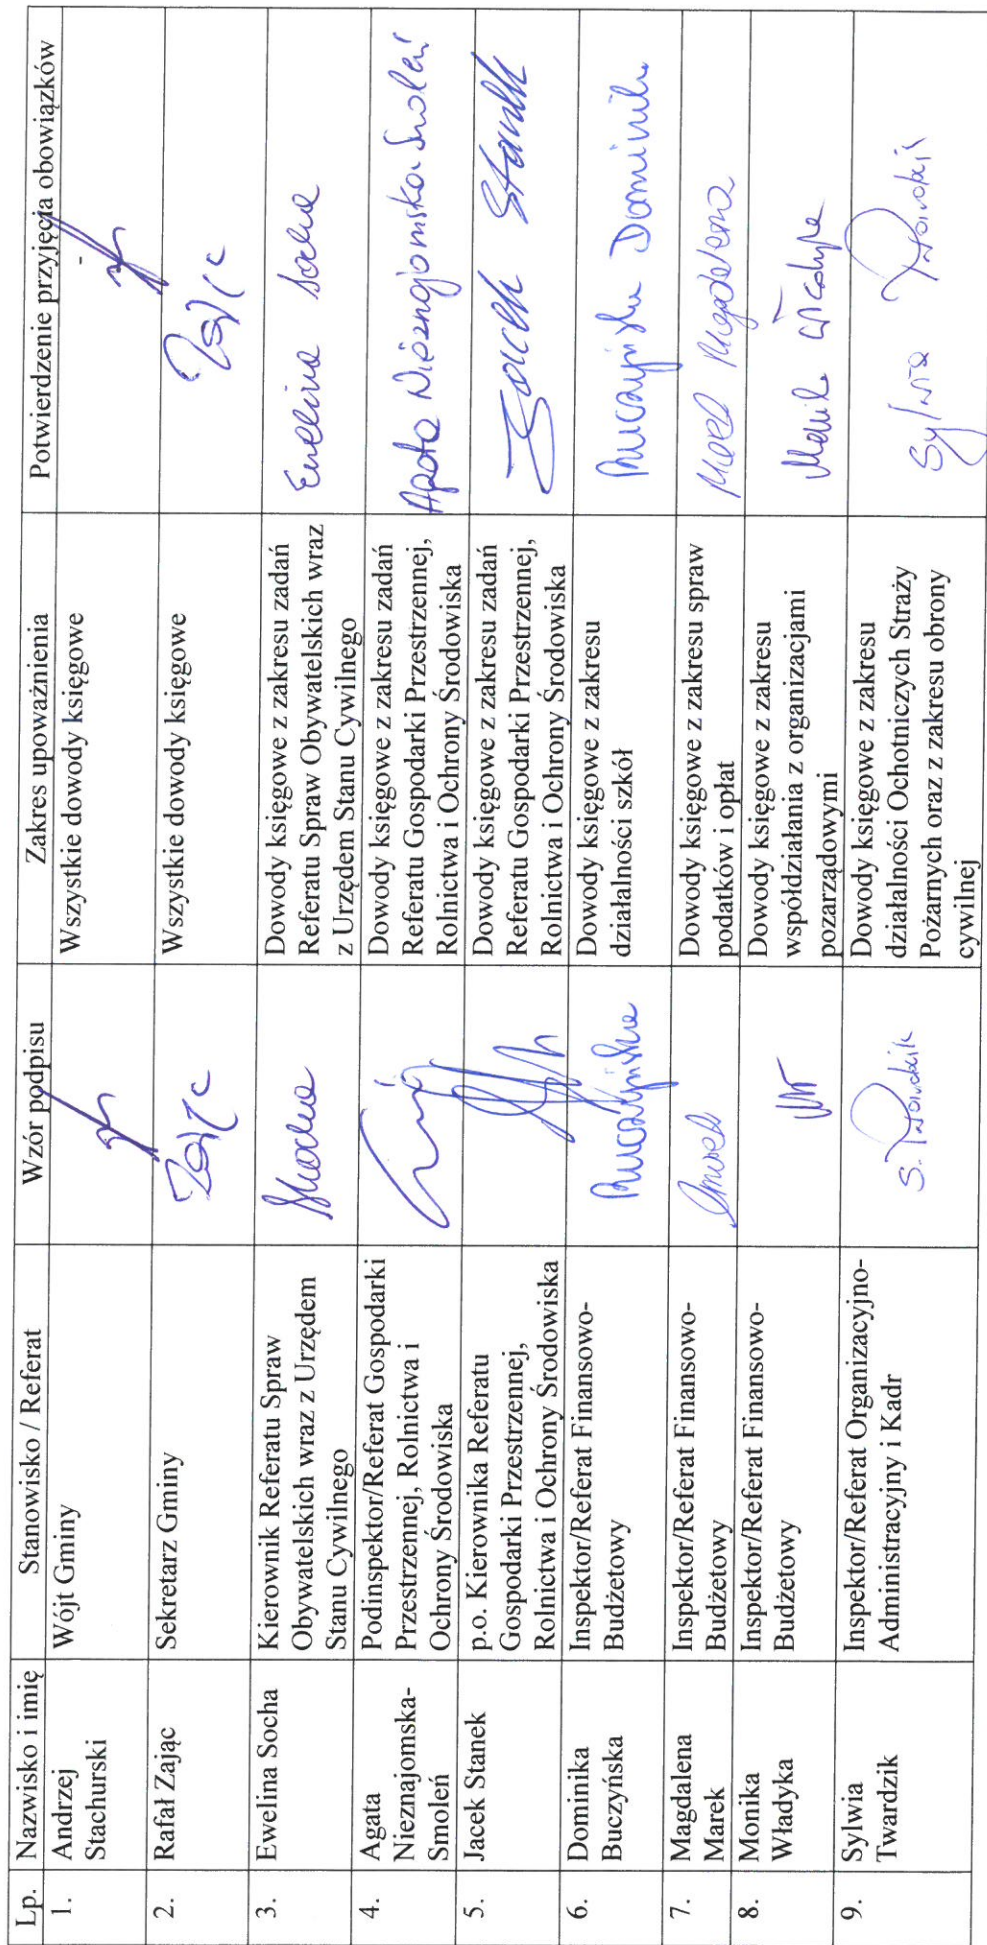 Lp.
Nazwisko i imię
Stanowisko / Referat
Wzór podpisu
Zakres upoważnienia
Potwierdzenie przyjęcia obowiązków
1.
Andrzej
Stachurski
Wójt Gminy
Wszystkie dowody księgowe
2.
Rafał Zając
Sekretarz Gminy
Zając
Wszystkie dowody księgowe
Zając
3.
Ewelina Socha
Kierownik Referatu Spraw
Obywatelskich wraz z Urzędem
Stanu Cywilnego
Socha
Dowody księgowe z zakresu zadań
Referatu Spraw Obywatelskich wraz
z Urzędem Stanu Cywilnego
Ewelina Socha
4.
Agata
Nieznajomska-
Smoleń
Podinspektor/Referat Gospodarki
Przestrzennej, Rolnictwa i
Ochrony Środowiska
Dowody księgowe z zakresu zadań
Referatu Gospodarki Przestrzennej,
Rolnictwa i Ochrony Środowiska
Agata Nieznajomska-Smoleń
5.
Jacek Stanek
p.o. Kierownika Referatu
Gospodarki Przestrzennej,
Rolnictwa i Ochrony Środowiska
Dowody księgowe z zakresu zadań
Referatu Gospodarki Przestrzennej,
Rolnictwa i Ochrony Środowiska
Jacek Stanek
6.
Dominika
Buczyńska
Inspektor/Referat Finansowo-
Budżetowy
Buczyńska
Dowody księgowe z zakresu
działalności szkół
Buczyńska Dominika
7.
Magdalena
Marek
Inspektor/Referat Finansowo-
Budżetowy
Marek
Dowody księgowe z zakresu spraw
podatków i opłat
Marek Magdalena
8.
Monika
Władyka
Inspektor/Referat Finansowo-
Budżetowy
Dowody księgowe z zakresu
współdziałania z organizacjami
pozarządowymi
Monika Władyka
9.
Sylwia
Twardzik
Inspektor/Referat Organizacyjno-
Administracyjny i Kadr
S. Twardzik
Dowody księgowe z zakresu
działalności Ochotniczych Straży
Pożarnych oraz z zakresu obrony
cywilnej
Sylwia Twardzik